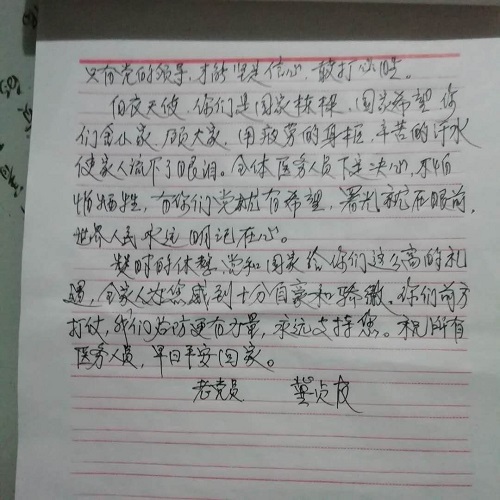 只有党的领导，才能坚定信心，敢打必胜。
白衣天使，你们是国家栋樑，国家希望，你
们舍小家，顾大家，用疲劳的身躯，辛苦的汗水
使家人流下了眼泪。全体医务人员下定决心，不怕
怕牺牲，有你们党就有希望，署光就在眼前，
世界人民永远明记在心。
暂时的休整，党和国家给你们这么高的礼
遇，全家人为您感到十分自豪和骄傲。你们前方
打仗，我们后防更有力量，永远支持您。祝所有
医务人员，早日平安回家。
老党员 冀贞友